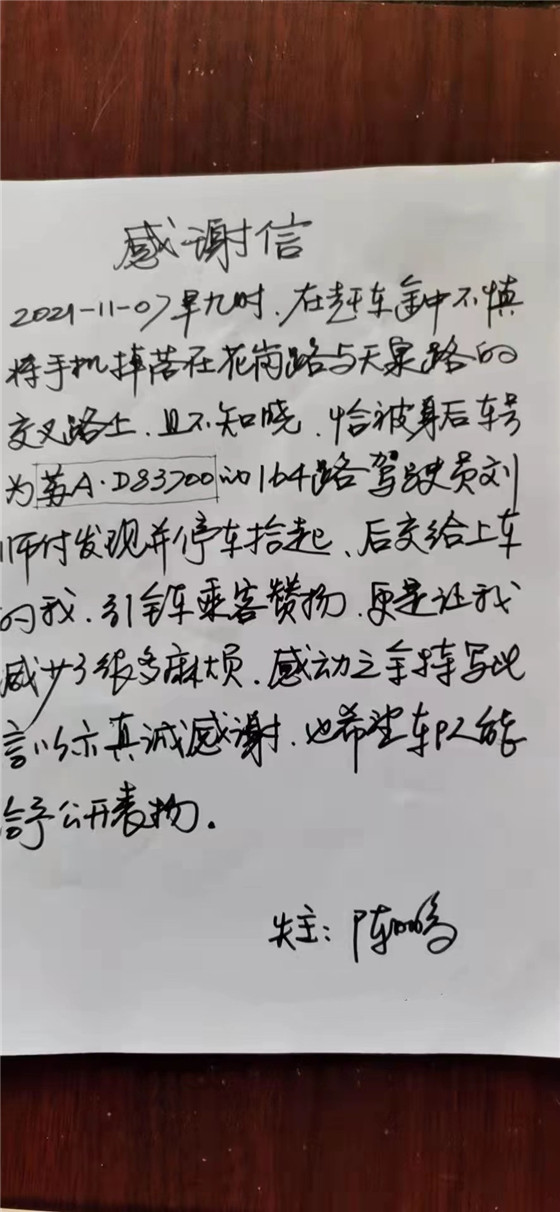 感谢信
2021-11-07早九时,在赶车途中不慎
将手机掉落在花岗路与天泉路的
交叉路上、且不知晓,恰被身后车号
为苏A·D83700的164路驾驶员刘
师付发现并停车拾起、后交给上车
的我,引全车乘客赞扬,更是让我
减少了很多麻烦,感动之余特写此
言以示真诚感谢,也希望车队能
给予公开表扬.
失主:陈鸣